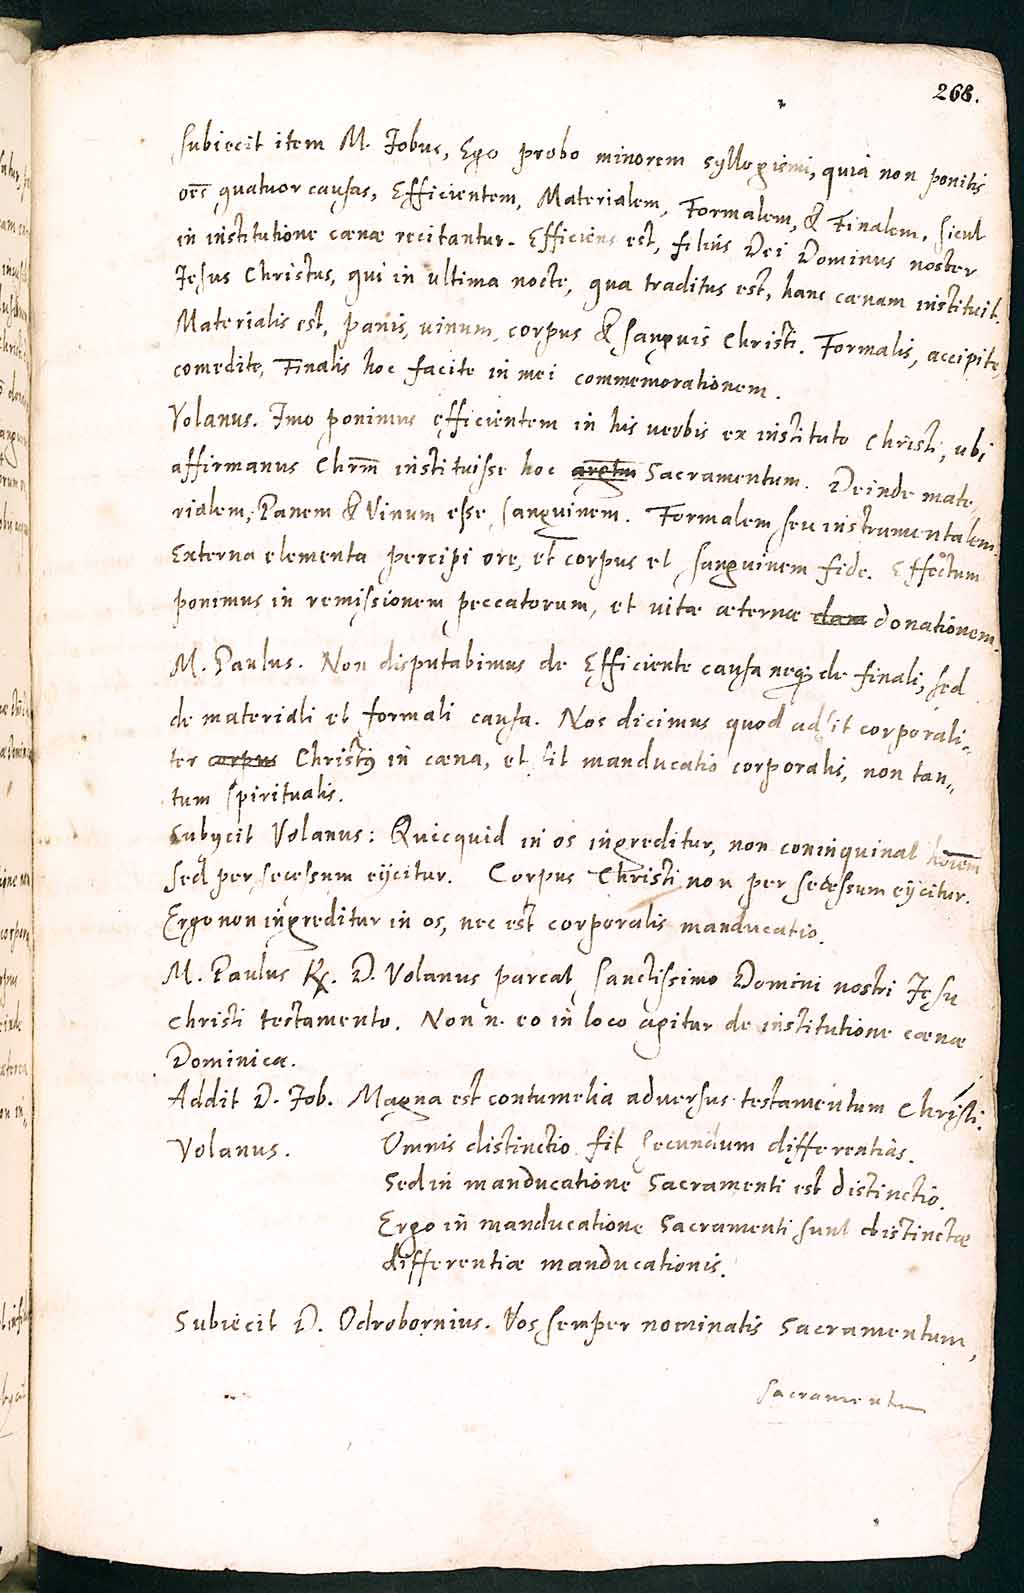 268.
Subiecit item M. Jobus, Ego probo minorem syllogismi, quia non ponitis
oēs quatuor causas, Efficientem, Materialem, Formalem, & Finalem, sicut
in institutione cœnæ recitantur. Efficiens est, filius Dei Dominus noster
Jesus Christus, qui in ultima nocte, qua traditus est, hanc cœnam instituit.
Materialis est, panis, vinum, corpus & sanguis Christi. Formalis, accipite,
comedite, Finalis hoc facite in mei commemorationem.
Volanus. Imo ponimus efficientem in his verbis ex instituto Christi, ubi
affirmamus Chrm̄ instituisse hoc Sacramentum. Deinde mate,
rialem, Panem & Vinum esse sanguinem. Formalem seu instrumentalem.
Externa elementa percipi ore, et corpus et sanguinem fide. Effectum
ponimus in remissionem peccatorum, et vitæ æternæ dam donationem.
M. Paulus. Non disputabimus de Efficiente causa neq; de finali, sed
de materiali et formali causa. Nos dicimus quod adsit corporali,,
ter corpus Christꝰ in cœna, et fit manducatio corporalis, non tan,,
tum spiritualis.
Subijcit Volanus: Quicquid in os ingreditur, non coninquinat hoīem
sed per secessum eijcitur. Corpus Christi non per secessum eijcitur.
Ergo non ingreditur in os, nec est corporalis manducatio.
M. Paulus R. D. Volanus parcat sanctissimo Domini nostri Jesu
Christi testamento. Non n. eo in loco agitur de institutione cœnæ
Dominicæ.
Addit D. Job. Magna est contumelia adversus testamentum Christi.
Volanus. Omnis distinctio fit secundum differentias.
Sed in manducatione Sacramenti est distinctio.
Ergo in manducatione Sacramenti sunt distinctæ
differentiæ manducationis.
Subiecit D. Odrobornius. Vos semper nominatis Sacramentum,
sacramentum